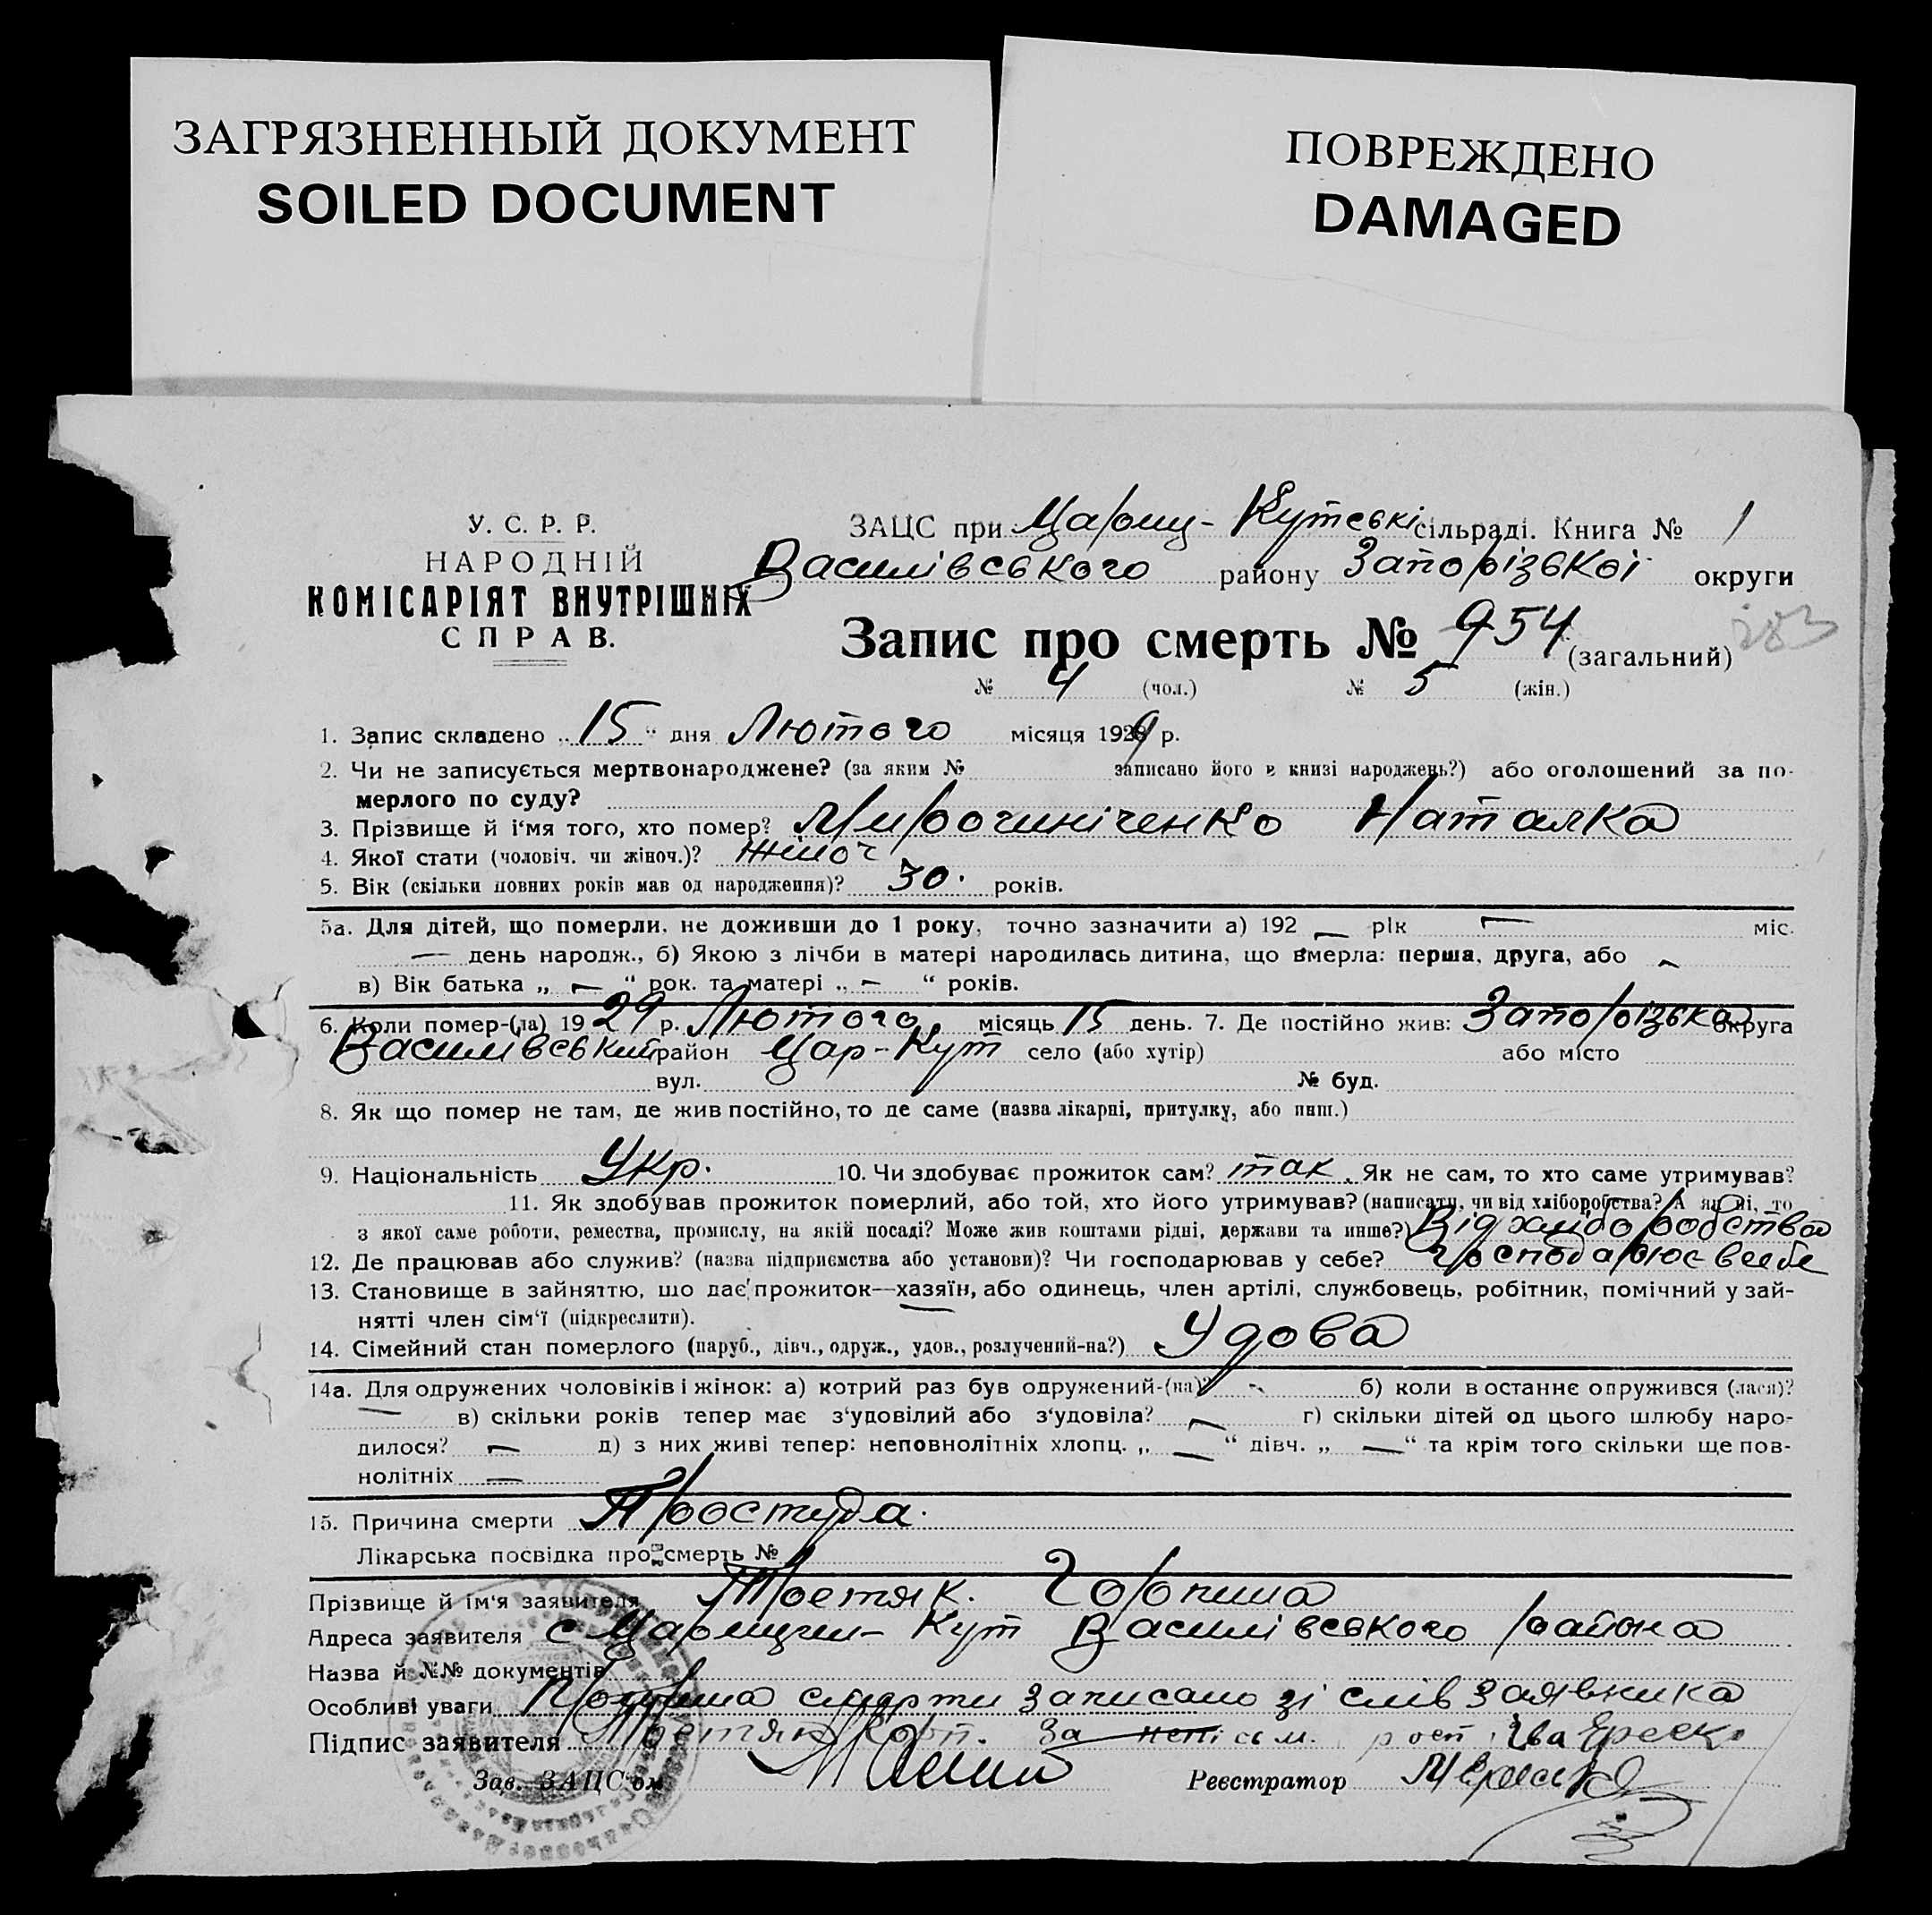 ЗАГРЯЗНЕННЫЙ ДОКУМЕНТ
SOILED DOCUMENT
ПОВРЕЖДЕНО
DAMAGED
У. С. Р. Р.
НАРОДНІЙ
КОМІСАРІЯТ ВНУТРІШНІХ
СПРАВ.
ЗАЦС при Кутські сільраді. Книга № 1
Василівського району Запорізької округи
Запис про смерть № 954 (загальний)
№ 4 (чол.) № 5 (жін.)
1. Запис складено „15“ дня Лютого місяця 1929 р.
2. Чи не записується мертвонароджене? (за яким № записано його в книзі народжень?) або оголошений за по-
мерлого по суду?
3. Прізвище й і'мя того, хто помер? Мирочниченко Наталка
4. Якої стати (чоловіч. чи жіноч.)? жіноч
5. Вік (скільки повних років мав од народження)? 30. років.
5а. Для дітей, що померли, не доживши до 1 року, точно зазначити а) 192 — рік — міс.
— день народж., б) Якою з лічби в матері народилась дитина, що вмерла: перша, друга, або —
в) Вік батька „ — “ рок. та матері „ — “ років.
6. Коли помер-(ла) 1929 р. Лютого місяць 15 день. 7. Де постійно жив: Запорізька округа
Василівський район Цар-Кут село (або хутір) або місто
вул. № буд.
8. Як що помер не там, де жив постійно, то де саме (назва лікарні, притулку, або инш.)
9. Національність Укр. 10. Чи здобуває прожиток сам? так. Як не сам, то хто саме утримував?
11. Як здобував прожиток померлий, або той, хто його утримував? (написати, чи від хліборобства? А як ні, то
з якої саме роботи, ремества, промислу, на якій посаді? Може жив коштами рідні, держави та инше?) Від хліборобства
12. Де працював або служив? (назва підприємства або установи)? Чи господарював у себе?
13. Становище в зайняттю, що дає прожиток—хазяїн, або одинець, член артілі, службовець, робітник, помічний у зай-
нятті член сім'ї (підкреслити).
14. Сімейний стан померлого (паруб., дівч., одруж., удов., розлучений-на?) Удова
14а. Для одружених чоловіків і жінок: а) котрий раз був одружений-(на)? - б) коли востаннє опружився (лася)?
— в) скільки років тепер має з'удовілий або з'удовіла? — г) скільки дітей од цього шлюбу наро-
дилося? — д) з них живі тепер: неповнолітніх хлопц. „ — “ дівч. „ — “ та крім того скільки ще пов-
нолітніх —
15. Причина смерти Простуда.
Лікарська посвідка про смерть №
Прізвище й ім'я заявителя Третяк. Горпина
Адреса заявителя с Царицин-Кут Василівського района
Назва й №№ документів
Особливі уваги смерти записано зі слів заявника
Підпис заявителя Третяк Горп. За
Зав. ЗАЦС'ом
Реєстратор